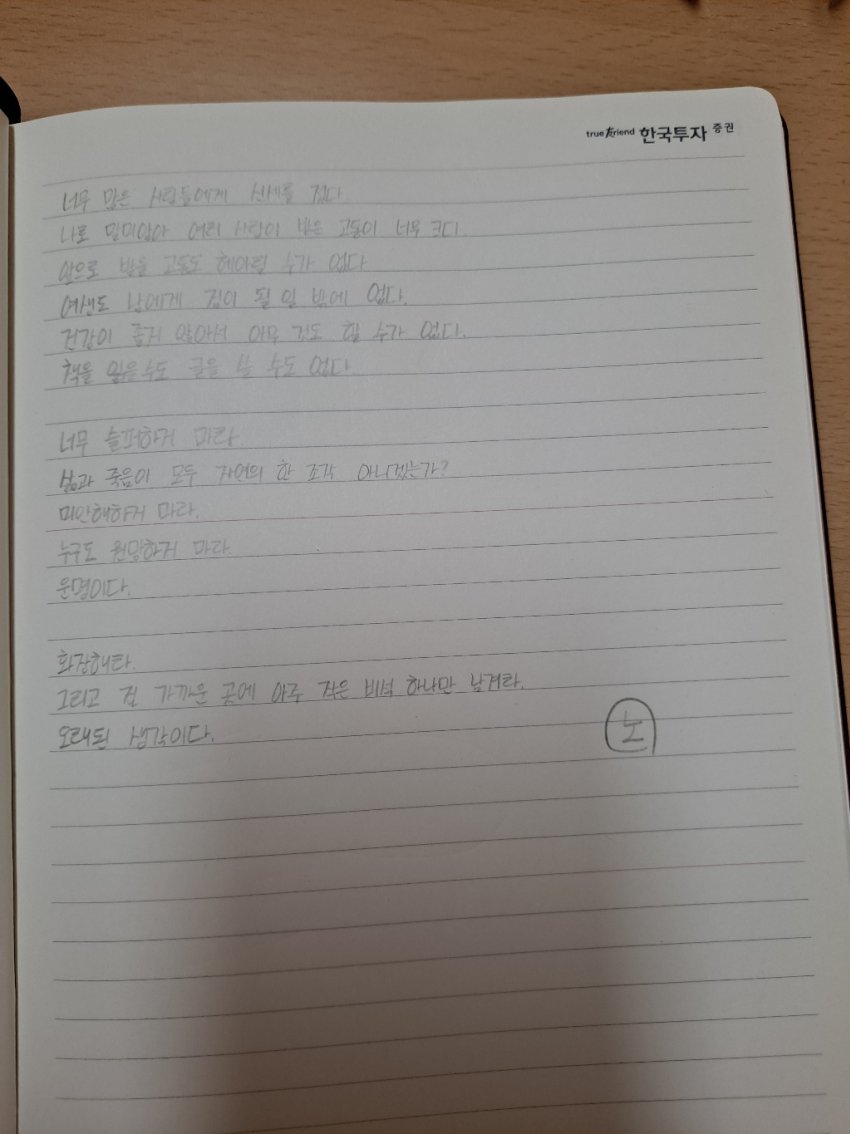 true friend 한국투자 증권
너무 많은 사람들에게 신세를 졌다
나로 말미암아 여러 사람이 받은 고통이 너무 크다.
앞으로 받을 고통도 헤아릴 수가 없다
여생도 남에게 짐이 될 일 밖에 없다.
건강이 좋지 않아서 아무 것도 할 수가 없다.
책을 읽을 수도 글을 쓸 수도 없다
너무 슬퍼하지 마라.
삶과 죽음이 모두 자연의 한 조각 아니겠는가?
미안해하지 마라.
누구도 원망하지 마라.
운명이다.
화장해라.
그리고 집 가까운 곳에 아주 작은 비석 하나만 남겨라.
오래된 생각이다.
노